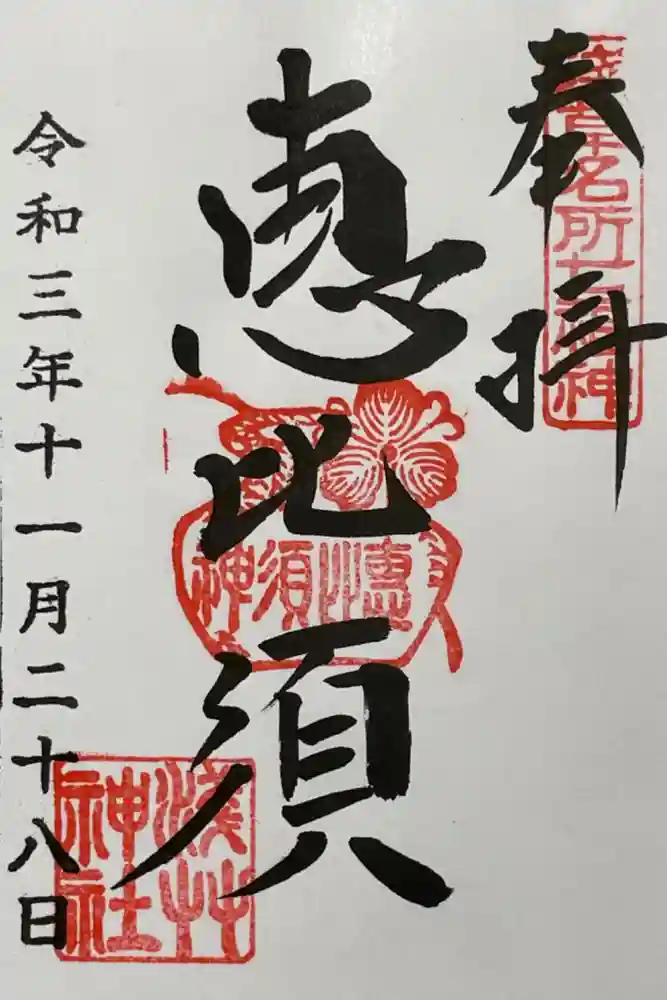 奉拝
浅草名所七福神
恵比須
神須比恵
浅草
神社
令和三年十一月二十八日